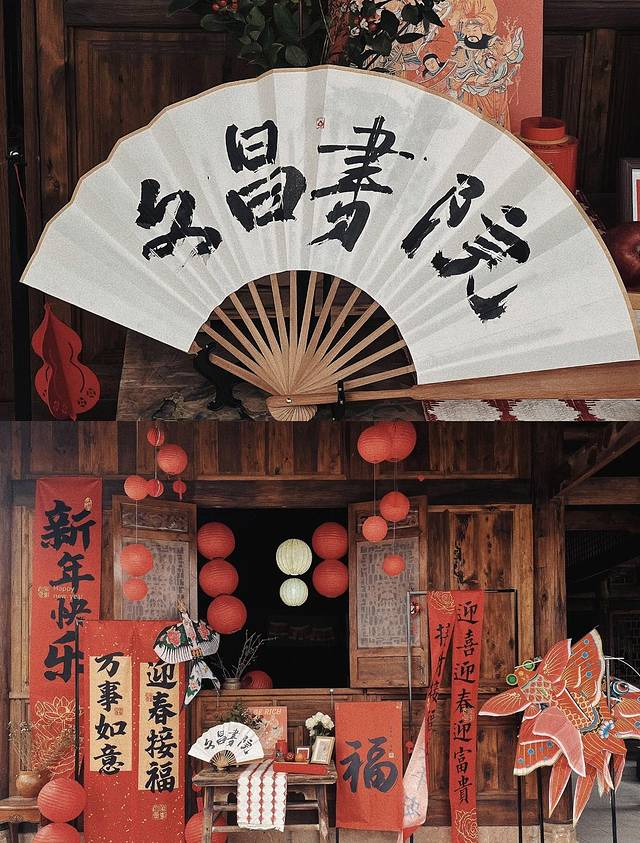 文昌書院
新年快乐
Happy
new year
万事如意
迎春接福
文昌書院
BE RICH
福
迎喜迎春迎富貴